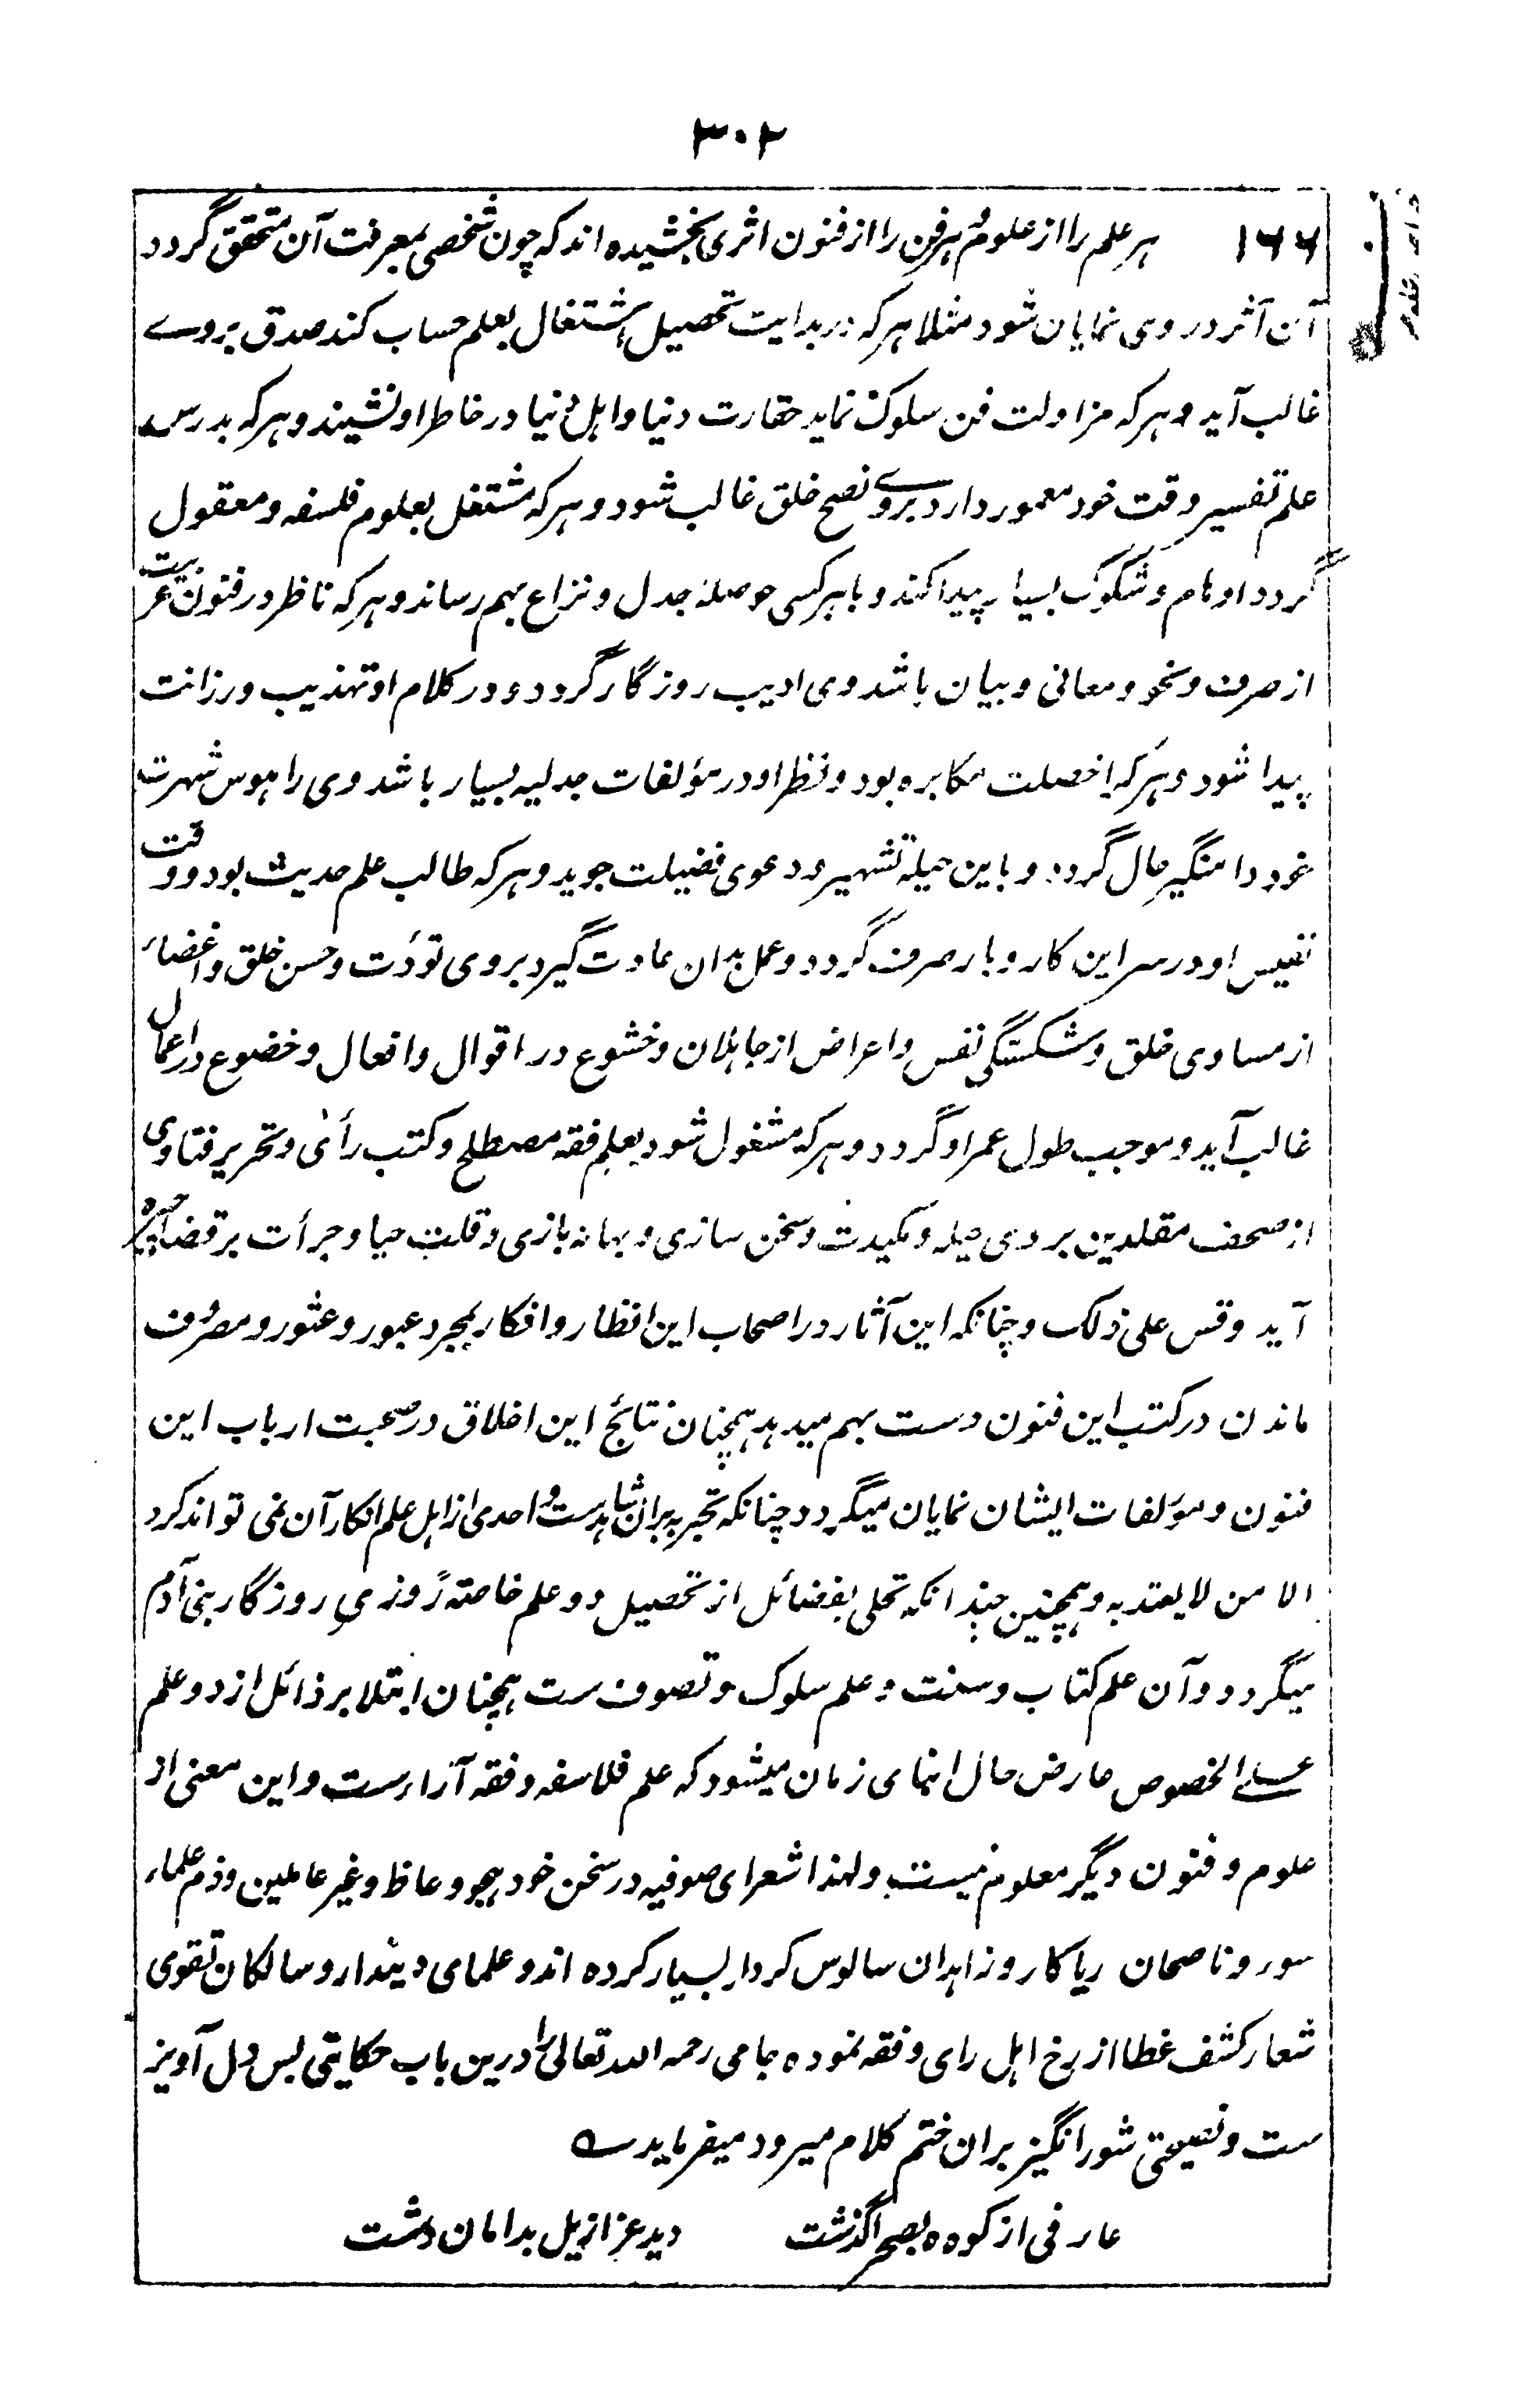 ۳۰۲
۱۶۶ هر علم را از علوم و هر فن را از فنون اثری بخشیده اند که چون شخصی بمعرفت آن متحقق گردد
آن آثر در وی نمایان شود مثلا هر که در بدایت تحصیل اشتغال بعلم حساب کند صدق بروے
غالب آید و هر که مزاولت فن سلوک نماید حقارت دنیا و اهل دنیا در خاطر او نشیند و هر که بدرس
علم تفسیر وقت خود معمور دارد بروے نصح خلق غالب شود و هر که مشتغل بعلوم فلسفه و معقول
گردد اوهام و شکوک بسیار پیدا کند و با هر کسی حوصله جدل و نزاع بهم رساند و هر که ناظر در فنون عربیت
از صرف و نحو و معانی و بیان باشد وی ادیب روزگار گردد و در کلام او تهذیب و رزانت
پیدا شود و هر که را خصلت مکابره بود و نظر او در مؤلفات جدلیه بسیار باشد وی را هوس شهرت
خود دامنگیر حال گردد و باین حیله تشهیر و دعوی فضیلت جوید و هر که طالب علم حدیث بود و وقت
نفیس او در سر این کار و بار صرف گردد و عمل بدان عادت گیرد بروی تؤدت و حسن خلق و اغضاء
از مساوی خلق و شکستگی نفس و اعراض از جاهلان و خشوع در اقوال و افعال و خضوع در اعمال
غالب آید و موجب طول عمر او گردد و هر که مشغول شود بعلم فقه مصطلح و کتب رأی و تحریر فتاوی
از صحف مقلدین بر وی حیله و مکیدت و سخن سازی و بهانه بازی و قلت حیا و جرأت بر قضا چیره
آید و قس علی ذلک و چنانکه این آثار در اصحاب این انظار و افکار بمجرد عبور و عثور و مصروف
ماندن در کتب این فنون دست بهم میدهد همچنان نتائج این اخلاق در صحبت ارباب این
فنون و مؤلفات ایشان نمایان میگردد چنانکه تجربه بران شاهدست و احدی از اهل علم انکار آن نمی تواند کرد
الا من لا یعتد به و همچنین چندانکه تحلی بفضائل از تحصیل دو علم خاصة روزی روزگار بنی آدم
میگردد و آن علم کتاب و سنت و علم سلوک و تصوف ست همچنان ابتلا برذائل از دو علم
علے الخصوص عارض حال ابنای زمان میشود که علم فلاسفه و فقه آراءست و این معنی از
علوم و فنون دیگر معلوم نیست و لهذا شعرای صوفیه در سخن خود هجو وعاظ و غیر عاملین و ذم علماء
سوء و ناصحان ریا کار و زاهدان سالوس کردار بسیار کرده اند و علمای دیندار و سالکان تقوی
شعار کشف غطا از رخ اهل رای و فقه نموده جامی رحمه الله تعالی را درین باب حکایتی بس دل آویز
ست و نصیحتی شور انگیز بران ختم کلام میرود میفرماید ے
عارفی از کوه بصحرا گذشت دید عزازیل بدامان دشت